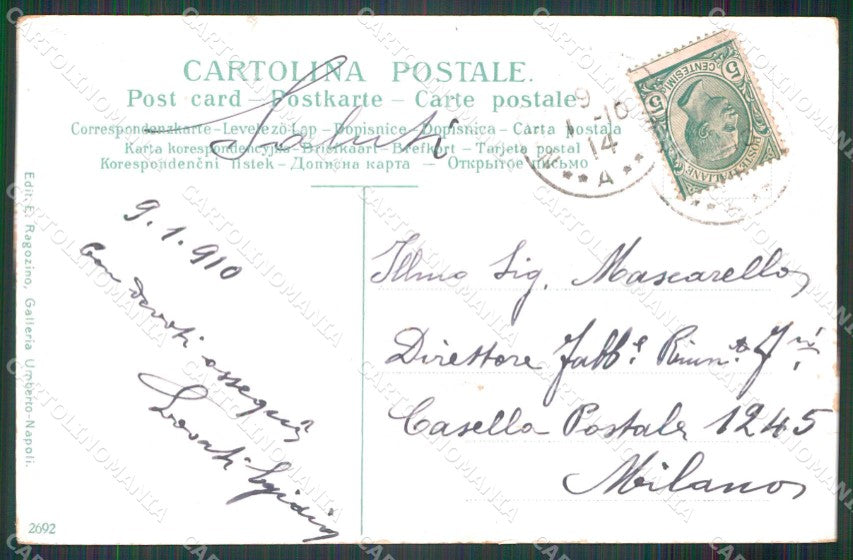 CARTOLINA POSTALE.
Post card – Postkarte – Carte postale
Correspondenzkarte – Levelező-Lap – Dopisnice – Dopisnica – Carta postala
Karta korespondencyjna – Briefkaart – Brefkort – Tarjeta postal
Korespondenční listek – Дописна карта – Открытое письмо
Saluti
9.1.910
Con devoti ossequii
Lovati Egidio
Illmo Sig. Mascarello
Direttore Fabb.e Riun.te
Casella Postale 1245
Milano
Edit. E. Ragozino, Galleria Umberto-Napoli.
2692
9
1-10
14
* * A * *
POSTE ITALIANE
CENTESIMI
5 5
CARTOLINOMANIA